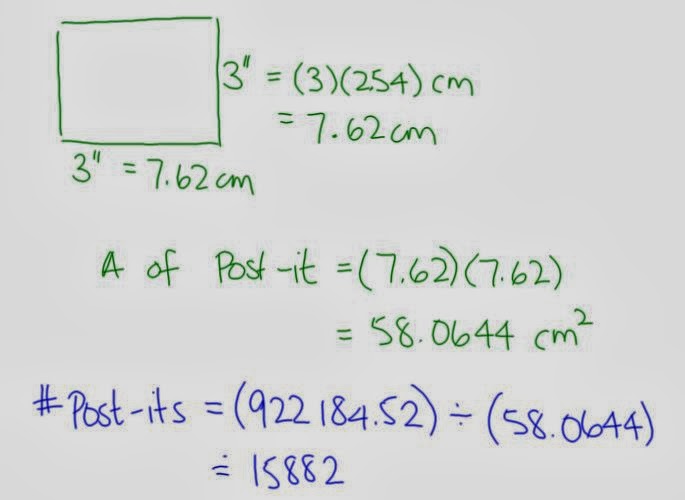 3" = (3)(2.54) cm
= 7.62 cm
3" = 7.62 cm
A of Post-it = (7.62)(7.62)
= 58.0644 cm²
# Post-its = (922184.52) ÷ (58.0644)
≐ 15882